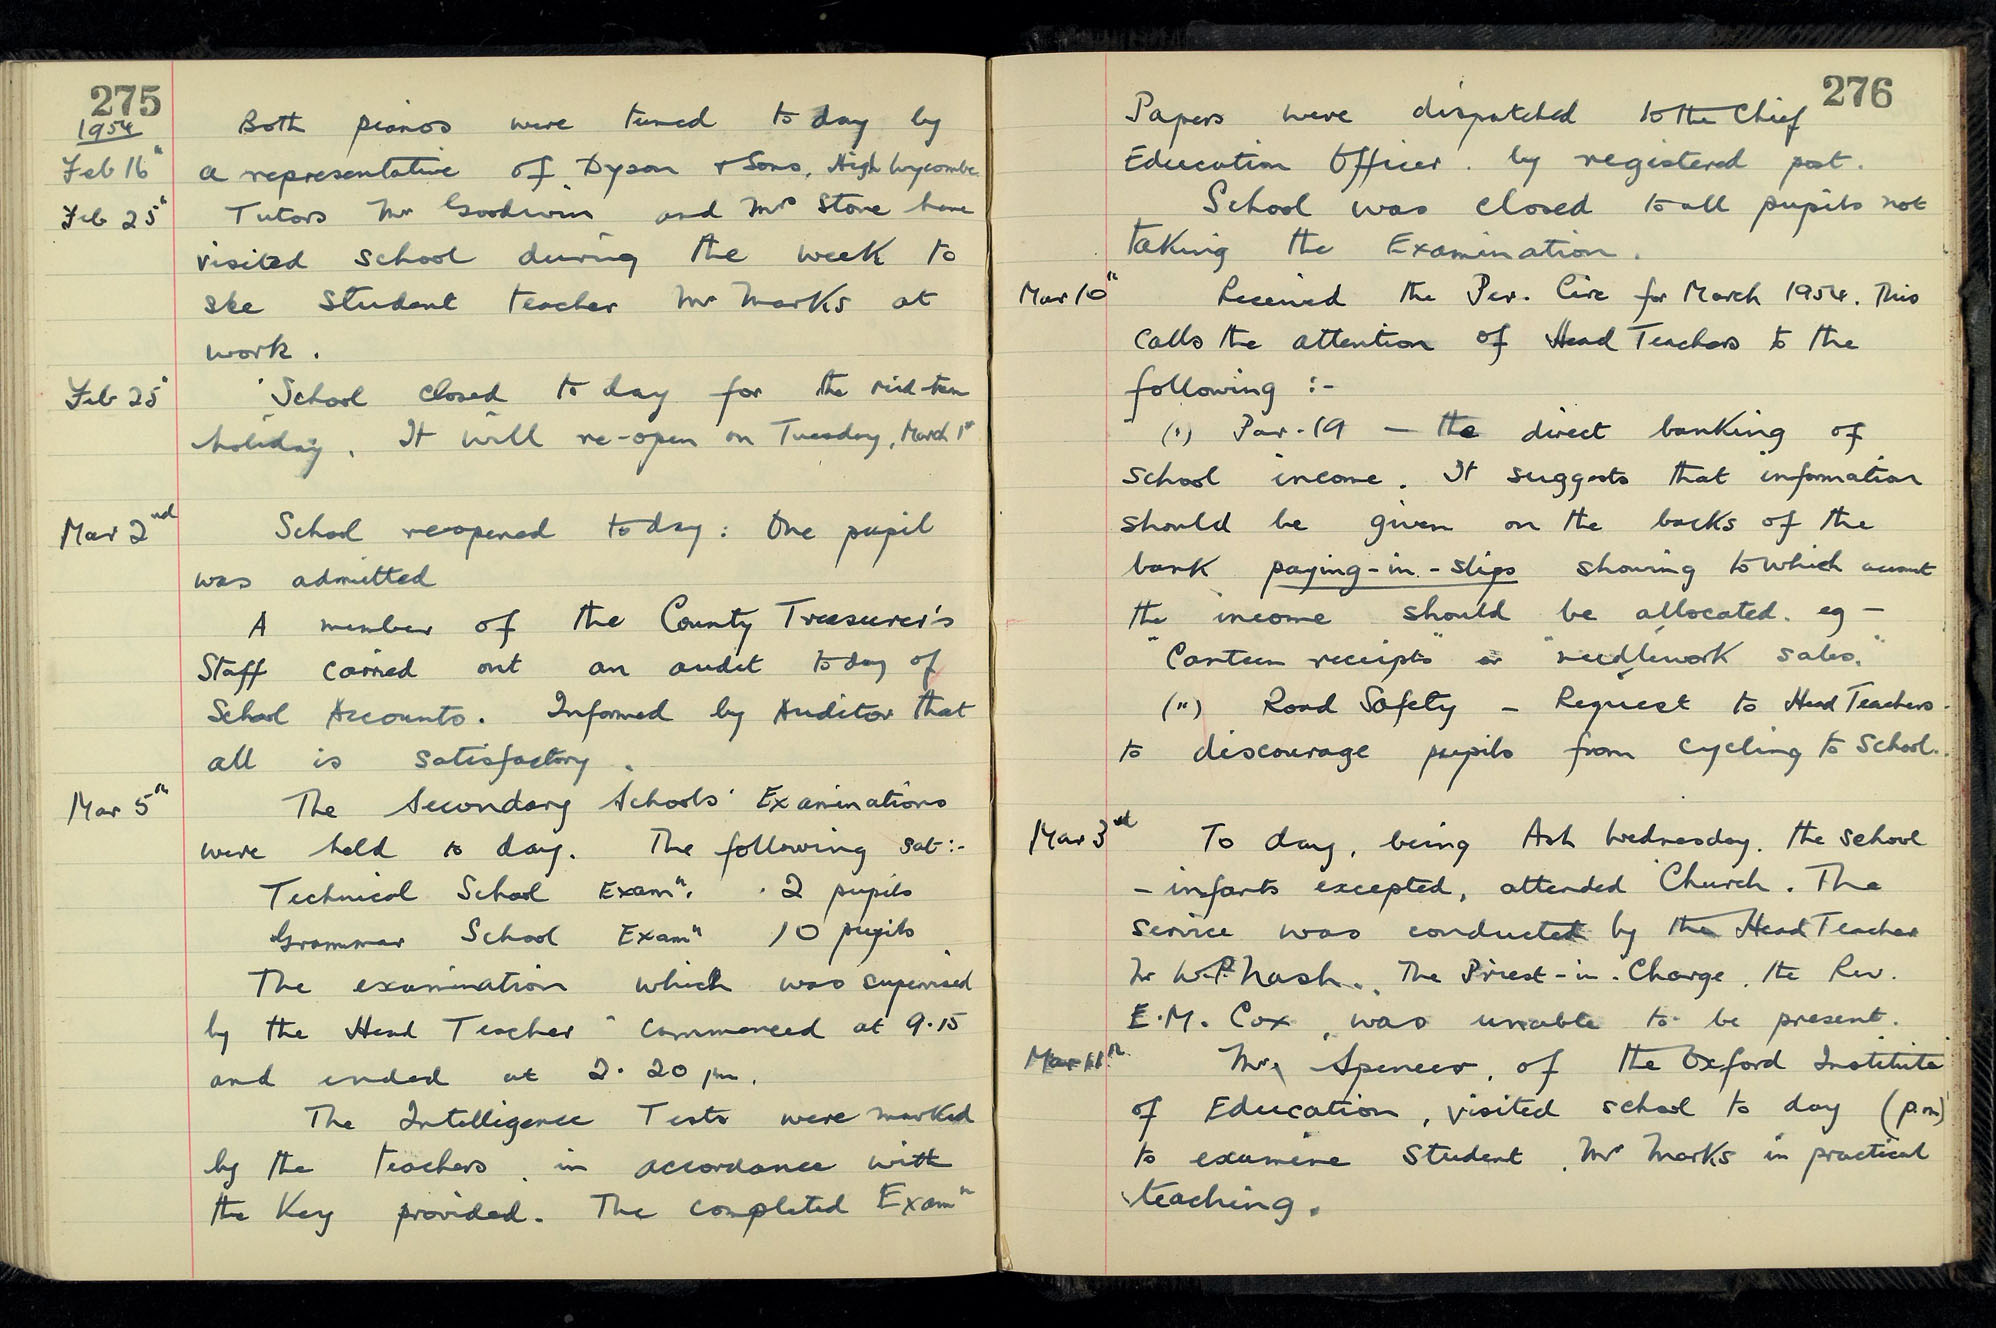 275
1954
Feb 16th Both pianos were tuned to day by
a representative of Dyson & Sons, High Wycombe
Feb 25th Tutors Mr Goodwin and Mrs Stone have
visited school during the week to
see student teacher Mr Marks at
work.
Feb 25th School closed to day for the mid-term
holiday. It will re-open on Tuesday, March 1st
Mar 2nd School reopened today: One pupil
was admitted
A member of the County Treasurer's
Staff carried out an audit today of
School Accounts. Informed by Auditor that
all is satisfactory.
Mar 5th The Secondary Schools' Examinations
were held to day. The following sat:-
Technical School Examn. 2 pupils
Grammar School Examn 10 pupils
The examination which was supervised
by the Head Teacher commenced at 9.15
and ended at 2.20 pm.
The Intelligence Tests were marked
by the teachers in accordance with
the Key provided. The completed Examn
276
Papers were dispatched to the Chief
Education Officer. by registered post.
School was closed to all pupils not
taking the Examination.
Mar 10th Received the Per. Circ for March 1954. This
calls the attention of Head Teachers to the
following :-
(i) Par. 19 — the direct banking of
school income. It suggests that information
should be given on the backs of the
bank paying-in-slips showing to which account
the income should be allocated. eg —
"Canteen receipts" or "needlework sales."
(ii) Road Safety — Request to Head Teachers
to discourage pupils from cycling to School.
Mar 3rd To day, being Ash Wednesday, the school
- infants excepted, attended Church. The
service was conducted by the Head Teacher
Mr W.P. Nash. The Priest-in-Charge, the Rev.
E.M. Cox, was unable to be present.
Mar 11th Mr. Spencer, of the Oxford Institute
of Education, visited school to day (p.m)
to examine Student, Mr Marks in practical
teaching.